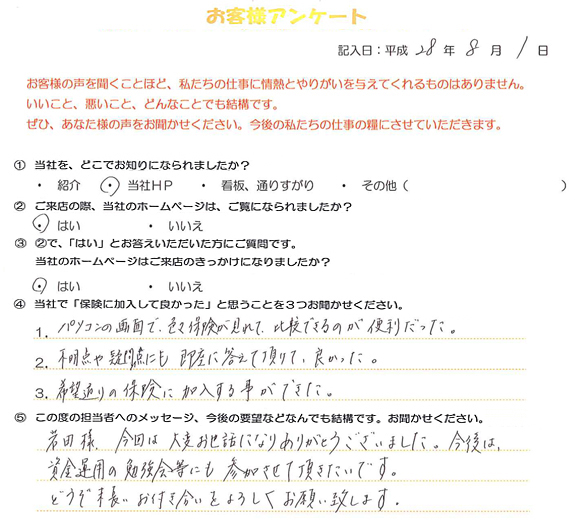 お客様アンケート
記入日：平成 28 年 8 月 1 日
お客様の声を聞くことほど、私たちの仕事に情熱とやりがいを与えてくれるものはありません。
いいこと、悪いこと、どんなことでも結構です。
ぜひ、あなた様の声をお聞かせください。今後の私たちの仕事の糧にさせていただきます。
① 当社を、どこでお知りになられましたか？
・ 紹介 ・ 当社ＨＰ ・ 看板、通りすがり ・ その他（ ）
② ご来店の際、当社のホームページは、ご覧になられましたか？
・ はい ・ いいえ
③ ②で、「はい」とお答えいただいた方にご質問です。
当社のホームページはご来店のきっかけになりましたか？
・ はい ・ いいえ
④ 当社で「保険に加入して良かった」と思うことを３つお聞かせください。
1. パソコンの画面で、色々保険が見れて、比較できるのが便利だった。
2. 不明点や疑問点にも即座に答えて頂けて、良かった。
3. 希望通りの保険に加入する事ができた。
⑤ この度の担当者へのメッセージ、今後の要望などなんでも結構です。お聞かせください。
岩田様、今回は大変お世話になりありがとうございました。今後は、
資金運用の勉強会等にも参加させて頂きたいです。
どうぞ末長いお付き合いをよろしくお願い致します。